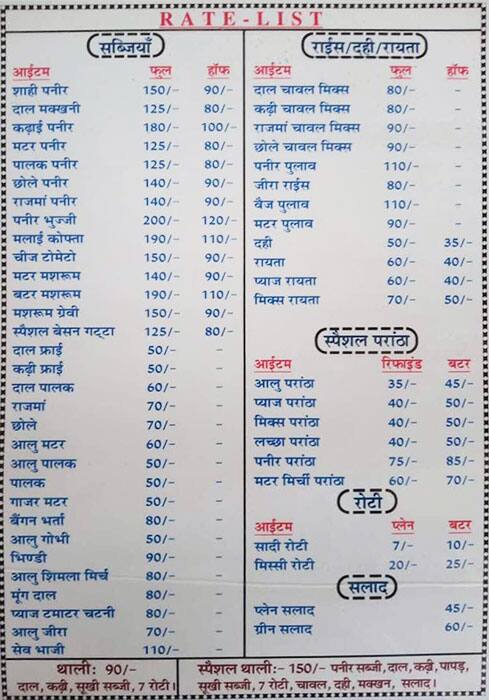 RATE-LIST
सब्जियाँ
आईटम फुल हॉफ
शाही पनीर 150/- 90/-
दाल मक्खनी 125/- 80/-
कढ़ाई पनीर 180/- 100/-
मटर पनीर 125/- 80/-
पालक पनीर 125/- 80/-
छोले पनीर 140/- 90/-
राजमां पनीर 140/- 90/-
पनीर भुज्जी 200/- 120/-
मलाई कोफ्ता 190/- 110/-
चीज टोमेटो 150/- 90/-
मटर मशरूम 140/- 90/-
बटर मशरूम 190/- 110/-
मशरूम ग्रेवी 150/- 90/-
स्पैशल बेसन गट्टा 125/- 80/-
दाल फ्राई 50/- -
कढ़ी फ्राई 50/- -
दाल पालक 60/- -
राजमां 70/- -
छोले 70/- -
आलु मटर 60/- -
आलु पालक 50/- -
पालक 50/- -
गाजर मटर 50/- -
बैंगन भर्ता 80/- -
आलु गोभी 50/- -
भिण्डी 90/- -
आलु शिमला मिर्च 80/- -
मूंग दाल 80/- -
प्याज टमाटर चटनी 80/- -
आलु जीरा 70/- -
सेव भाजी 110/- -
राईस/दही/रायता
आईटम फुल हॉफ
दाल चावल मिक्स 80/- -
कढ़ी चावल मिक्स 80/- -
राजमां चावल मिक्स 90/- -
छोले चावल मिक्स 90/- -
पनीर पुलाव 110/- -
जीरा राईस 80/- -
वैज पुलाव 110/- -
मटर पुलाव 90/- -
दही 50/- 35/-
रायता 60/- 40/-
प्याज रायता 60/- 40/-
मिक्स रायता 70/- 50/-
स्पैशल परांठा
आईटम रिफाइंड बटर
आलु परांठा 35/- 45/-
प्याज परांठा 40/- 50/-
मिक्स परांठा 40/- 50/-
लच्छा परांठा 40/- 50/-
पनीर परांठा 75/- 85/-
मटर मिर्ची परांठा 60/- 70/-
रोटी
आईटम प्लेन बटर
सादी रोटी 7/- 10/-
मिस्सी रोटी 20/- 25/-
सलाद
प्लेन सलाद 45/-
ग्रीन सलाद 60/-
थाली: 90/-
दाल, कढ़ी, सुखी सब्जी, 7 रोटी।
स्पैशल थाली:- 150/- पनीर सब्जी, दाल, कढ़ी, पापड़,
सुखी सब्जी, 7 रोटी, चावल, दही, मक्खन, सलाद।